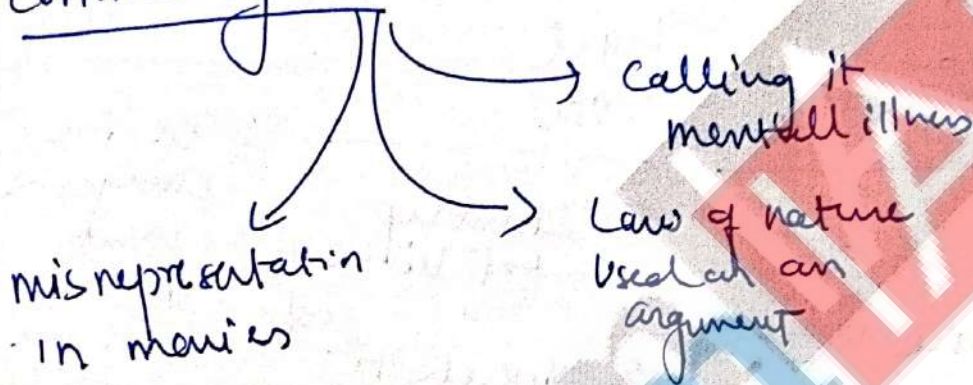 Calling it
mentall illness
Law of nature
Used as an
argument
misrepresentatin
in movies